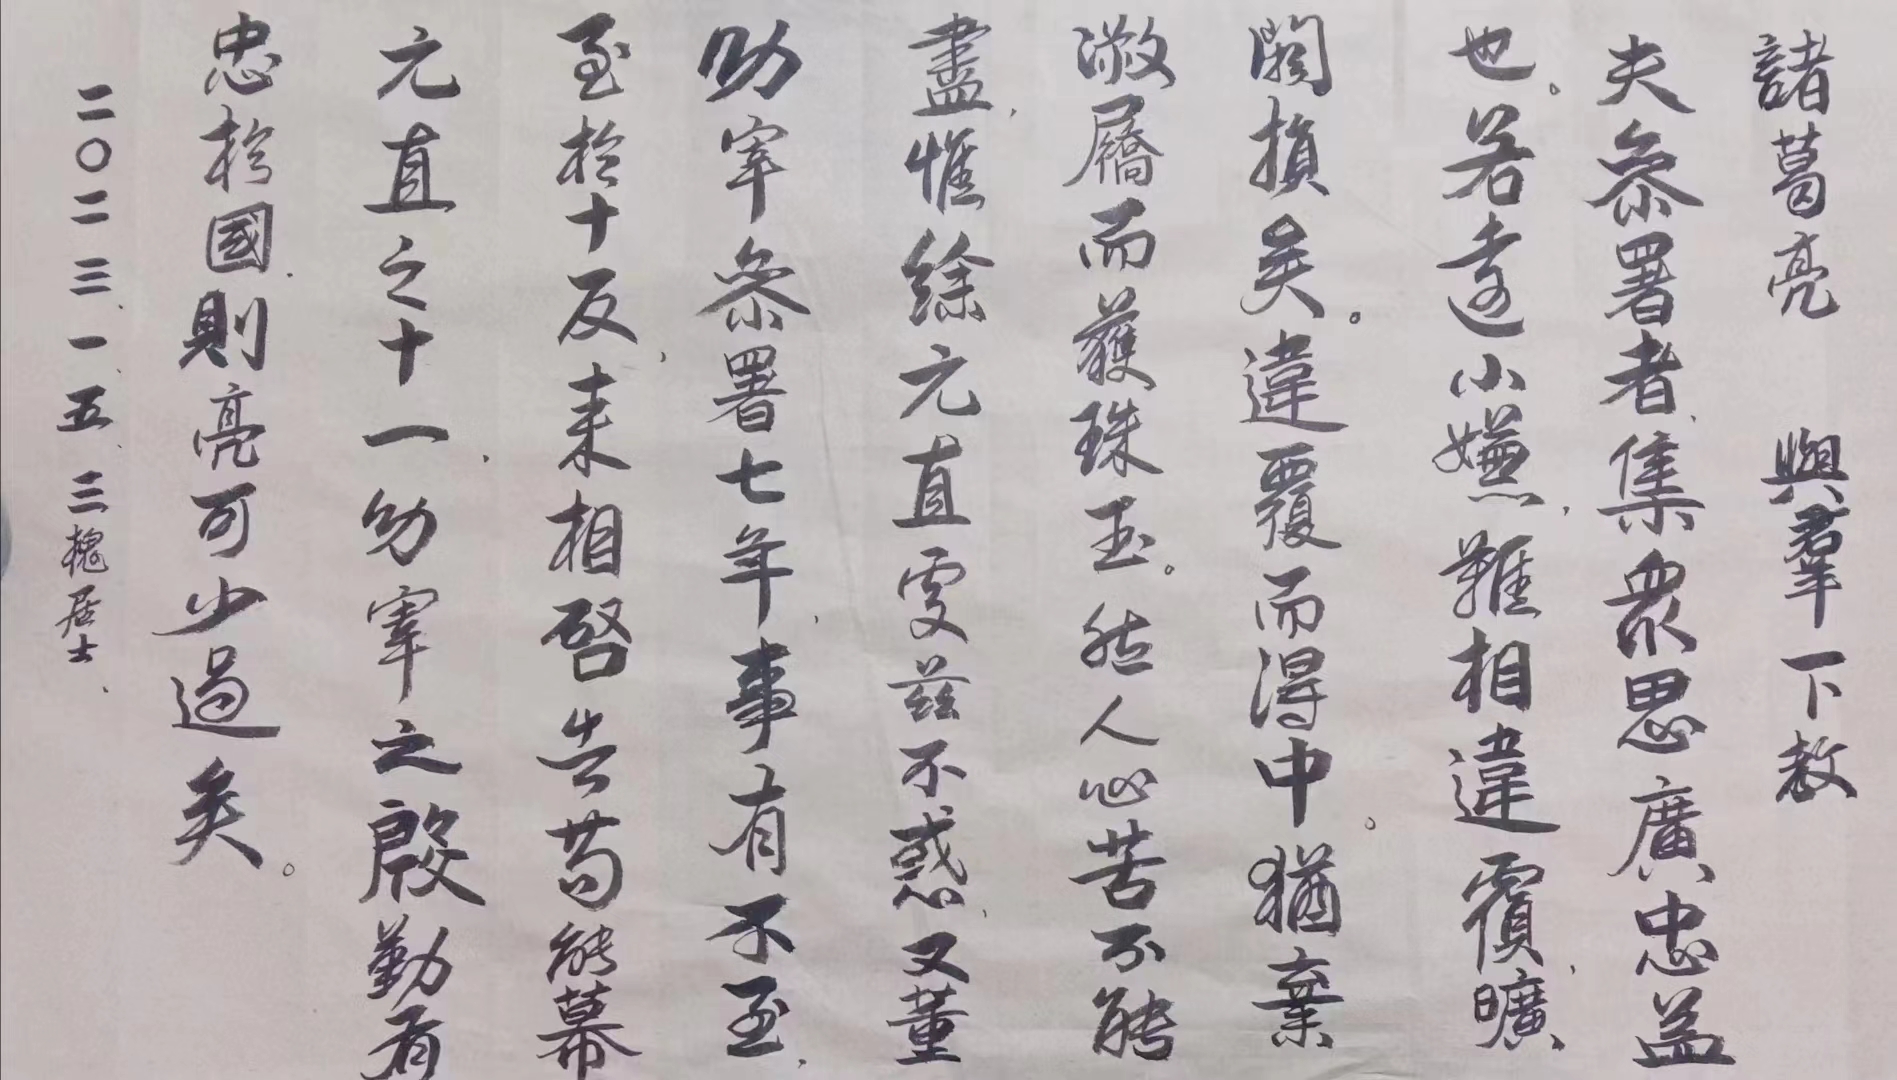 諸葛亮 與羣下教
夫參署者、集衆思廣忠益
也。若遠小嫌、難相違覆、曠
闕損矣。違覆而得中。猶棄
敝屩而獲珠玉。然人心苦不能
盡、惟徐元直處茲不惑、又董
幼宰參署七年、事有不至、
至於十反、来相啓告苟能幕
元直之十一、幼宰之殷勤有
忠於國、則亮可少過矣。
二〇二三、一、五、三槐居士、